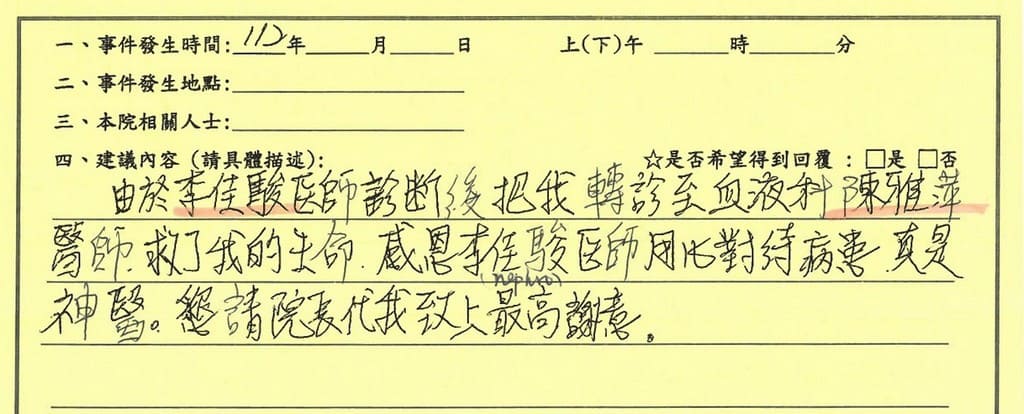 一、事件發生時間:112年____月____日 上(下)午____時____分
二、事件發生地點:
三、本院相關人士:
四、建議內容(請具體描述): ☆是否希望得到回覆:□是 □否
由於李佳駿医師診断後把我轉診至血液科陳雅萍
醫師.救了我的生命.感恩李佳駿医師用心對待病患.真是
(nephro)
神醫。懇請院長代我致上最高謝意。